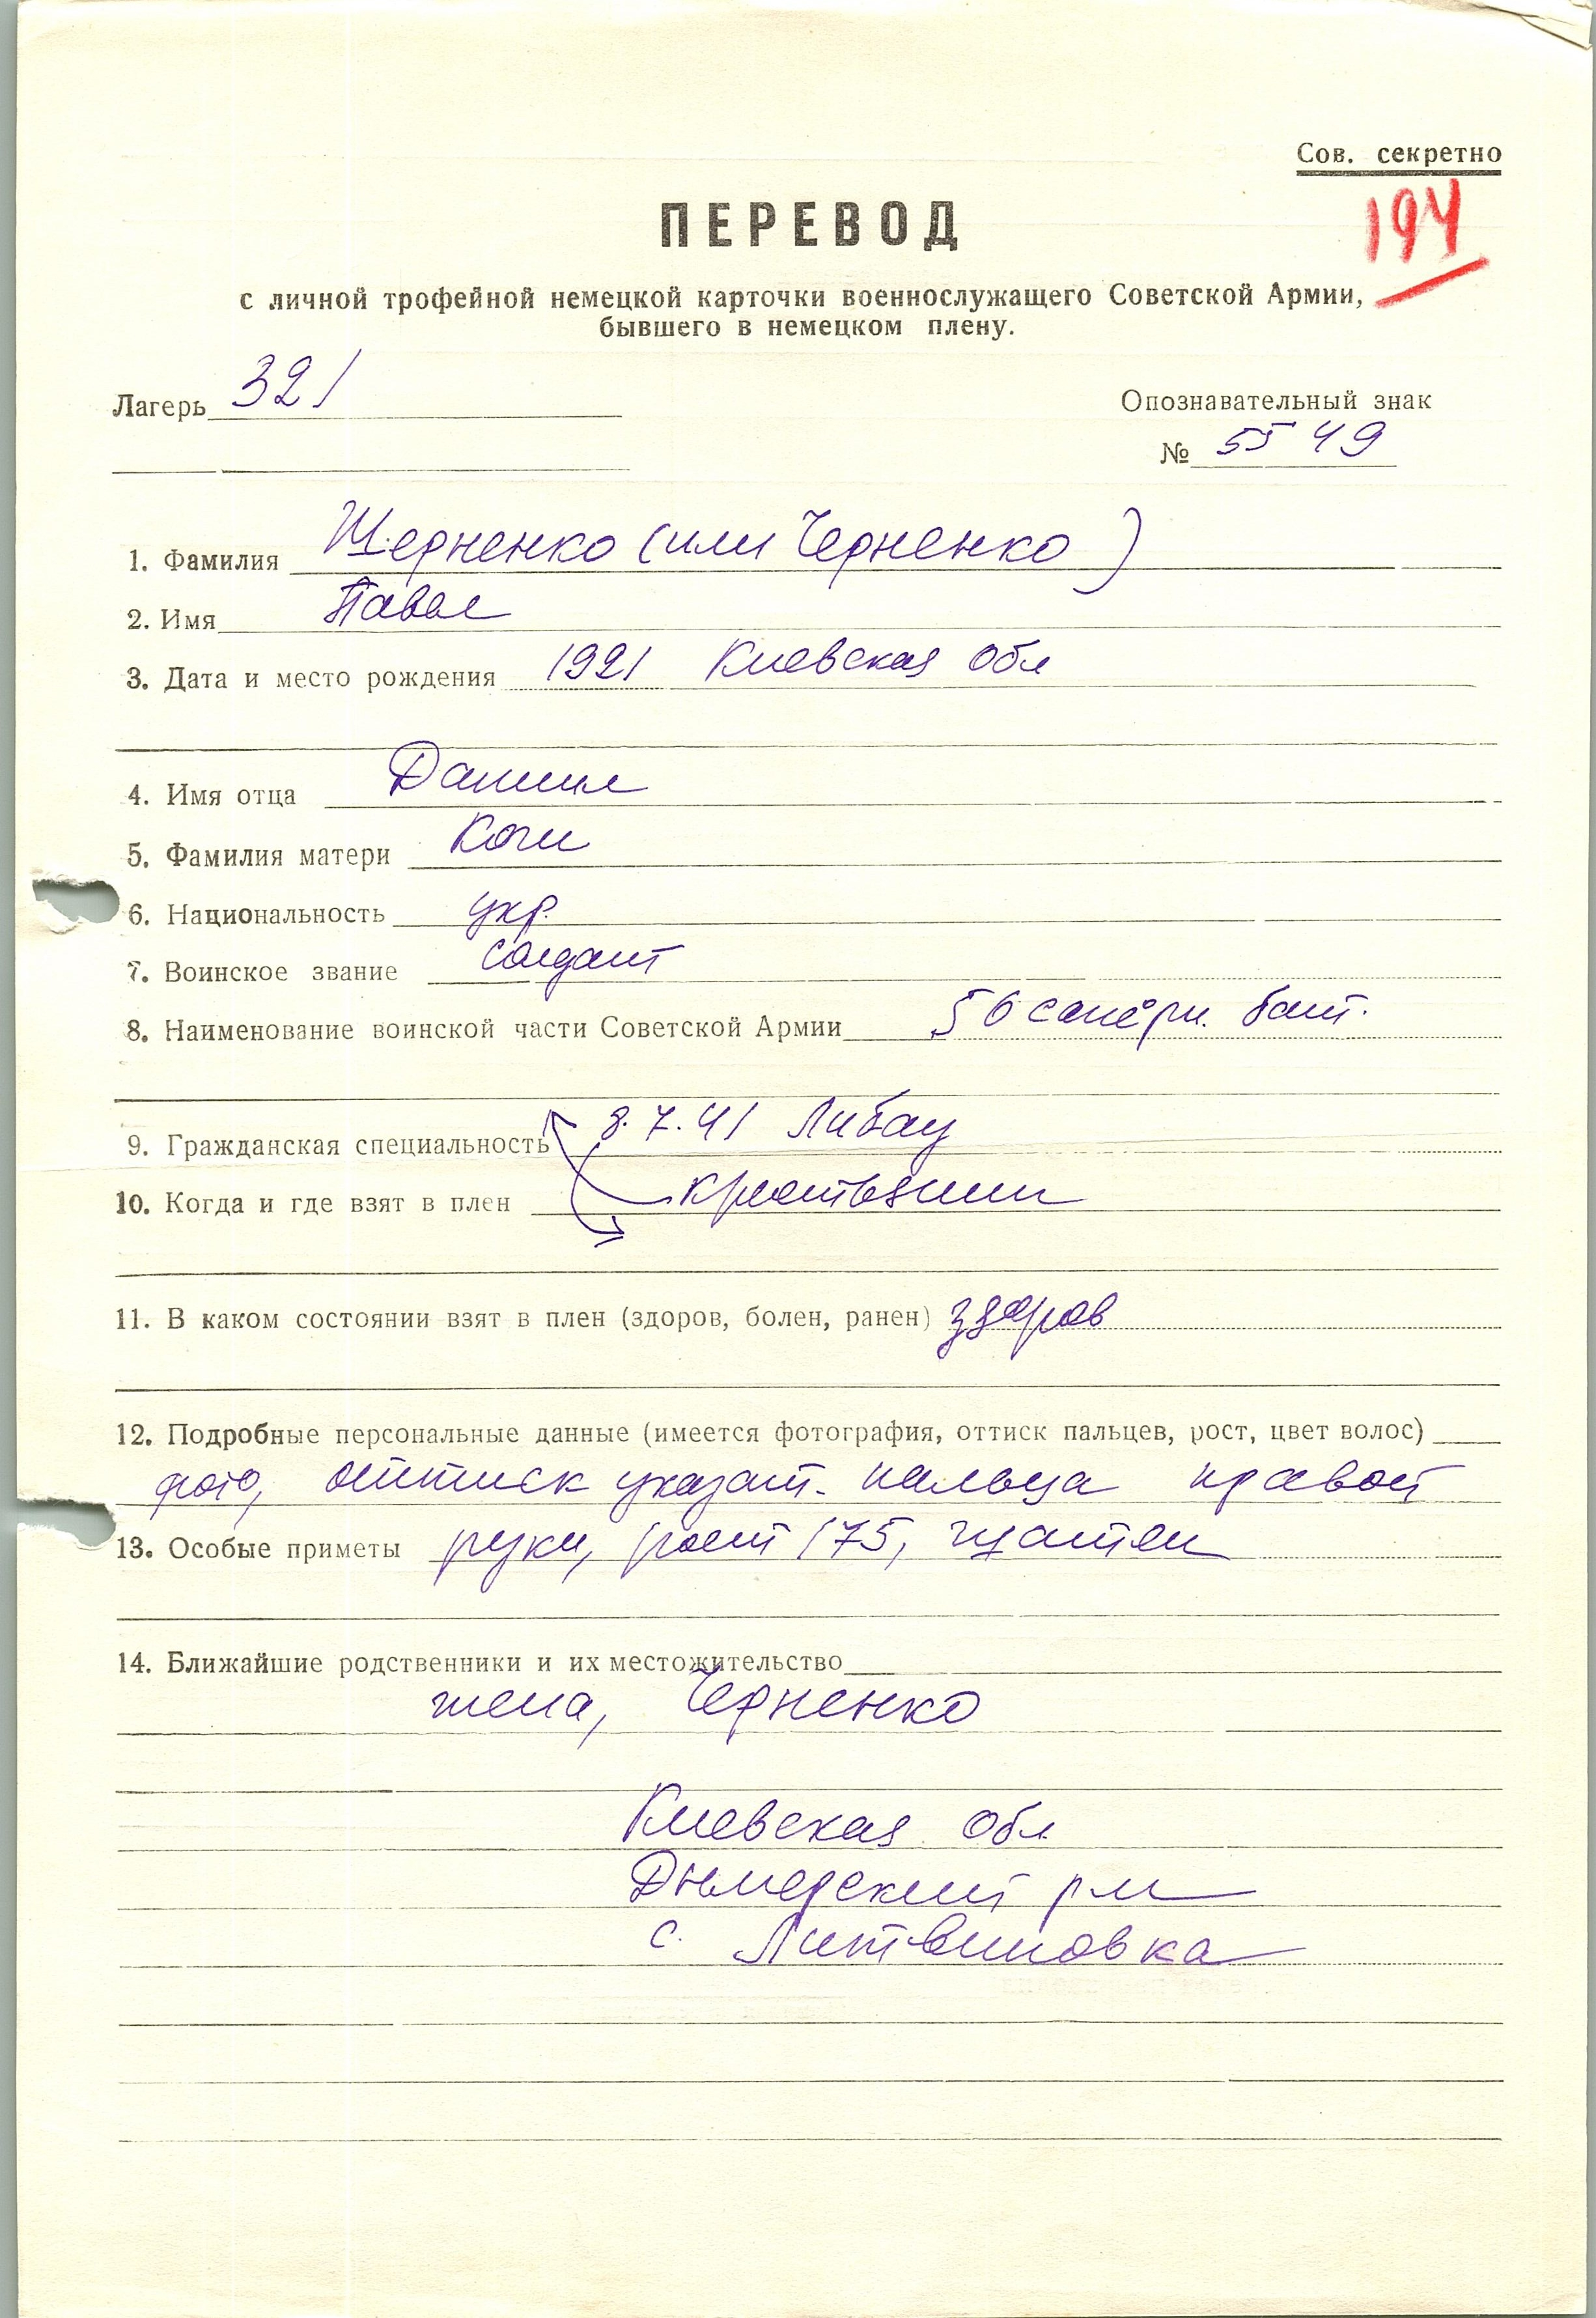 Сов. секретно
194
ПЕРЕВОД
с личной трофейной немецкой карточки военнослужащего Советской Армии,
бывшего в немецком плену.
Лагерь 321
Опознавательный знак
№ 5549
1. Фамилия Щерненко (или Черненко)
2. Имя Павел
3. Дата и место рождения 1921 Киевская обл
4. Имя отца Даниил
5. Фамилия матери
6. Национальность укр.
7. Воинское звание солдат
8. Наименование воинской части Советской Армии 56 саперн. бат.
9. Гражданская специальность 8.7.41 Либау
10. Когда и где взят в плен крестьянин
11. В каком состоянии взят в плен (здоров, болен, ранен) здоров
12. Подробные персональные данные (имеется фотография, оттиск пальцев, рост, цвет волос)
фото, оттиск указат. пальца правой
13. Особые приметы руки, рост 175, шатен
14. Ближайшие родственники и их местожительство
жена, Черненко
Киевская обл
Дымерский р-н
с. Литвиновка